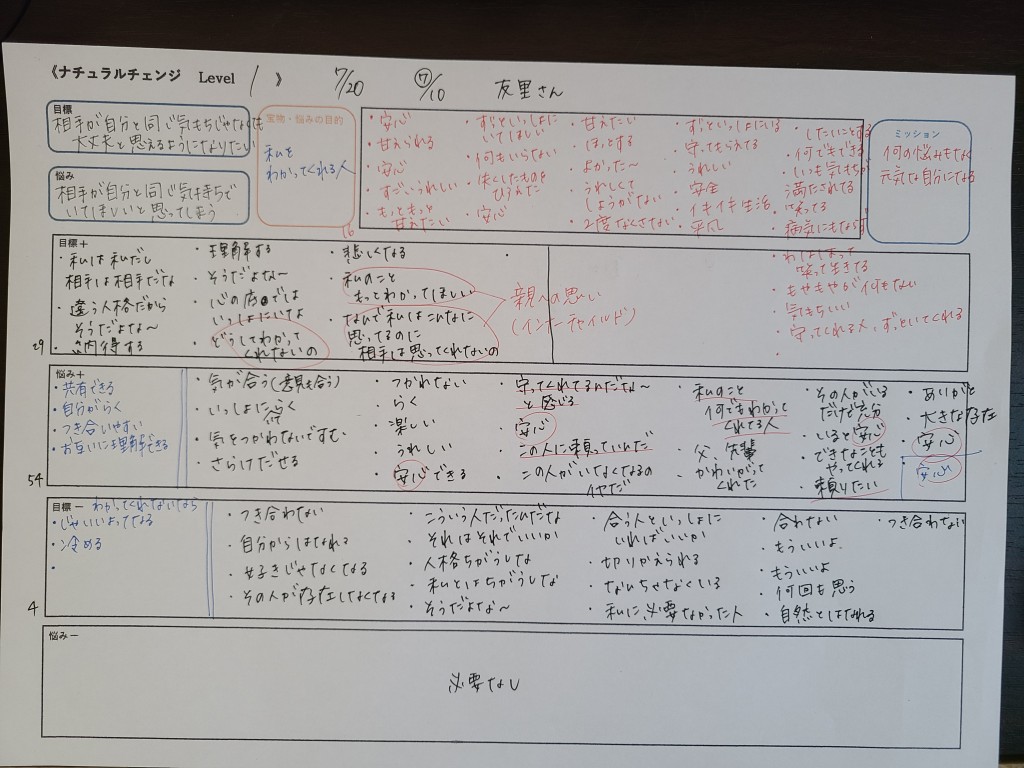 《ナチュラルチェンジ Level 1 》 7/20 ⑦/10 友里さん
目標
相手が自分と同じ気もちじゃなくても
大丈夫と思えるようになりたい
悩み
相手が自分と同じ気持ちで
いてほしいと思ってしまう
宝物・悩みの目的
私を
わかってくれる人
16
・安心
・甘えられる
・安心
・すごいうれしい
・もっともっと
甘えたい
・ずっといっしょに
いてほしい
・何もいらない
・失くしたものを
ひろえた
・安心
・甘えたい
・ほっとする
・よかった〜
・うれしくて
しょうがない
・2度なくさない
・ずっといっしょにいる
・守ってもらえてる
・うれしい
・安全
・イキイキ生活
・平凡
・したいことする
・何でもできる
・いつも気もちが
満たされてる
・笑ってる
・病気にもならず
ミッション
何の悩みもなく
元気な自分になる
目標+
・私は私だし
相手は相手だな
・違う人格だから
そうだよな〜
・納得する
29
・理解する
・そうだよな〜
・心の底では
いっしょにいてよ
・どうしてわかって
くれないの
・悲しくなる
・私のこと
もってわかってほしい
・なんで私はこんなに
思ってるのに
相手は思ってくれないの
親への思い
(インナーチャイルド)
笑って生きてる
・もやもやが何もない
・気もちいい
・守ってくれる人、ずっといてくれる
悩み+
・共有できる
・自分がらく
・つき合いやすい
・お互いに理解できる
54
・気が合う(意見も合う)
・いっしょに行く
らく
・気をつかわないですむ
・さらけだせる
・つかれない
・らく
・楽しい
・うれしい
・安心できる
・守ってくれてるんだな〜
と感じる
・安心
・この人に頼っていいんだ
・この人がいなくなるの
イヤだ
・私のこと
何でもわかって
くれてる人
・父、先輩
・かわいがって
くれた
・その人がいる
だけで充分
・いると安心
・できないことも
やってくれる
・頼りたい
・ありがと
・大きな存在
・安心
・安心
目標− わかってくれないなら
・じゃいいよってなる
・冷める
・
4
・つき合わない
・自分からはなれる
・好きじゃなくなる
・その人が存在しなくなる
・こういう人だったんだな
・それはそれでいいか
・人格ちがうしな
・私とはちがうしな
・そうだよな〜
・合う人といっしょに
いればいいか
・切りかえられる
・ないちゃなくいる
・私に必要なかった人
・合わない
・もういいよ
・もういいよ
・何回も思う
・自然とはなれる
・つき合わない
悩み−
必要なし